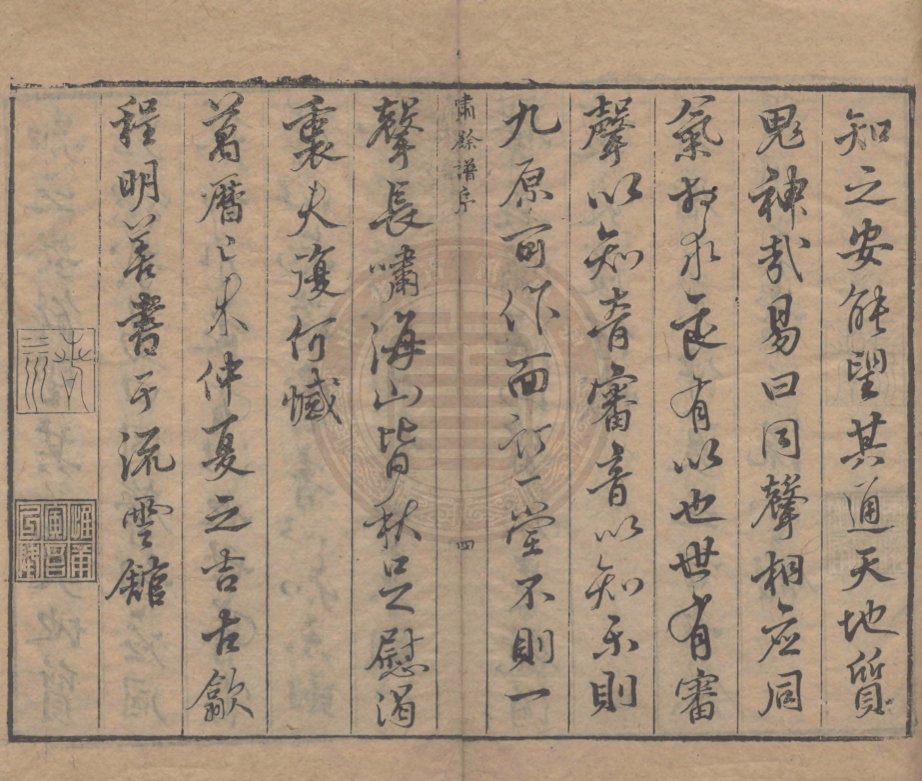 知之安能望其通天地質
鬼神哉易曰同聲相应同
氣相求良有以也世有審
聲以知音審音以知樂則
九原可作面訂一堂不則一
嘯餘譜序
四
聲長嘯海山皆秋足慰渴
衷夫復何憾
萬曆己未仲夏之吉古歙
程明善書于流雲館